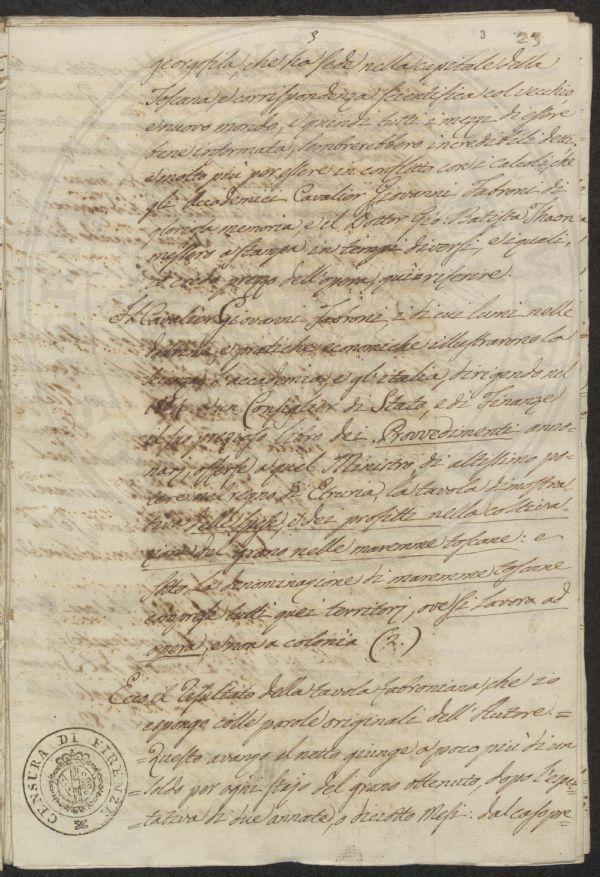 3
3
23
georgofila, che ha sede nella capitale della
Toscana, e corrispondenza scientifica col vecchio,
e nuovo mondo, e quindi tutti i mezzi di essere
bene informata, sembrerebbero incredibili detti,
e molto più per essere in conflitto con i calcoli, che
gli Accademici Cavalier Giovanni Fabroni di
memoria e il Dottor Gio. Batista Thaon
messero a stampa in tempi diversi, e i quali,
io credo prezzo dell'opera, qui riferire.
Il Cavalier Giovanni Fabroni, i di cui lumi nelle
e pratiche economiche illustrarono la
l'accademia, e gl'italia, dirigendo nel
d'un Consiglier di Stato, e di Finanze
il suo prezioso libro dei Provvedimenti anno-
narj, offerse a quel Ministro, di altissimo po-
tere nel regno di Etruria la tavola dimostra-
tiva delle spese, e dei profitti nella coltiva-
zione del grano nelle maremme toscane: e
sotto la denominazione di maremme toscane
comprese tutti quei territorj, ove si lavora ad
opera, e non a colonia (2.)
Ecco il resultato della tavola Fabroniana, che io
espongo colle parole originali dell'Autore. =
= Questo avanzo al netto giunge a poco più di un
= soldo per ogni stajo del grano ottenuto, dopo l'espet=
= tativa di due annate, o diciotto Mesi: dal caso pre=
CENSURA DI FIRENZE
3